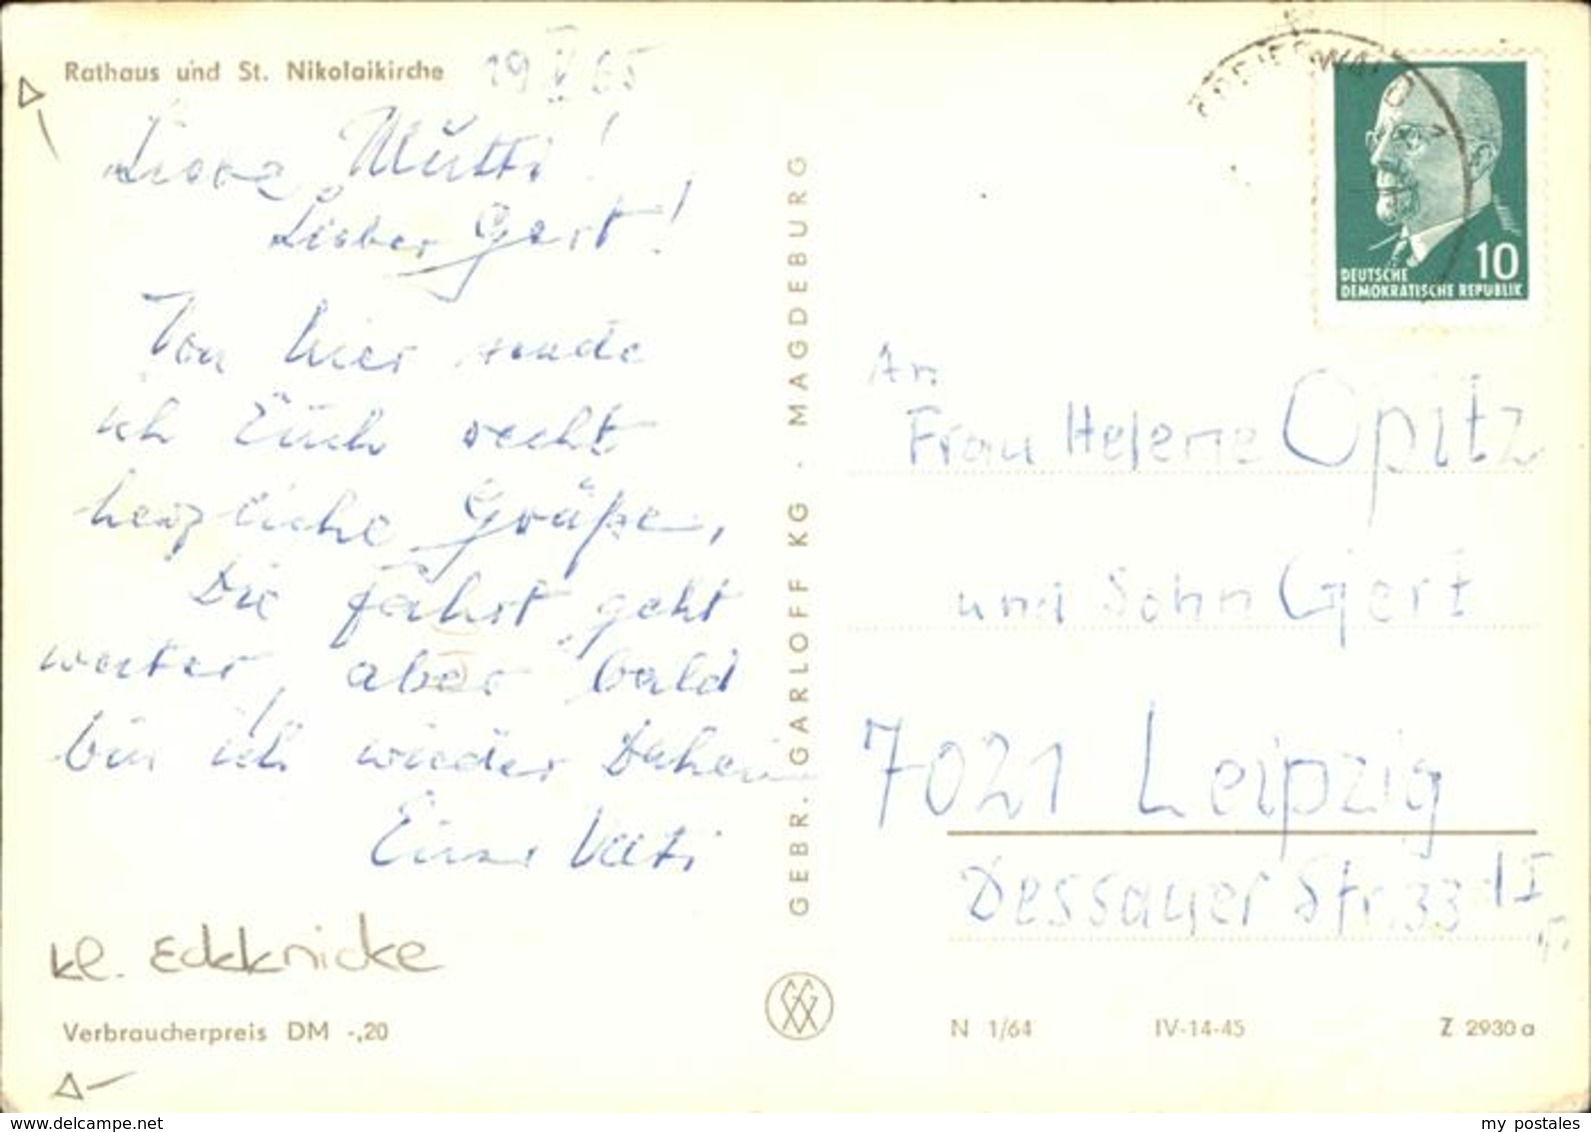 Rathaus und St. Nikolaikirche
19 V 65
Liebe Mutti!
Lieber Gert!
Von hier sende
ich Euch recht
herzliche Grüße,
Die Fahrt geht
weiter, aber bald
bin ich wieder Daheim
Euer Vati
kl. Eckknicke
Verbraucherpreis DM -,20
GEBR. GARLOFF KG · MAGDEBURG
10
DEUTSCHE
DEMOKRATISCHE REPUBLIK
An
Frau Helene Opitz
und Sohn Gert
7021 Leipzig
Dessauer Str. 33
N 1/64 IV-14-45 Z 2930 a
www.delcampe.net
my_postales